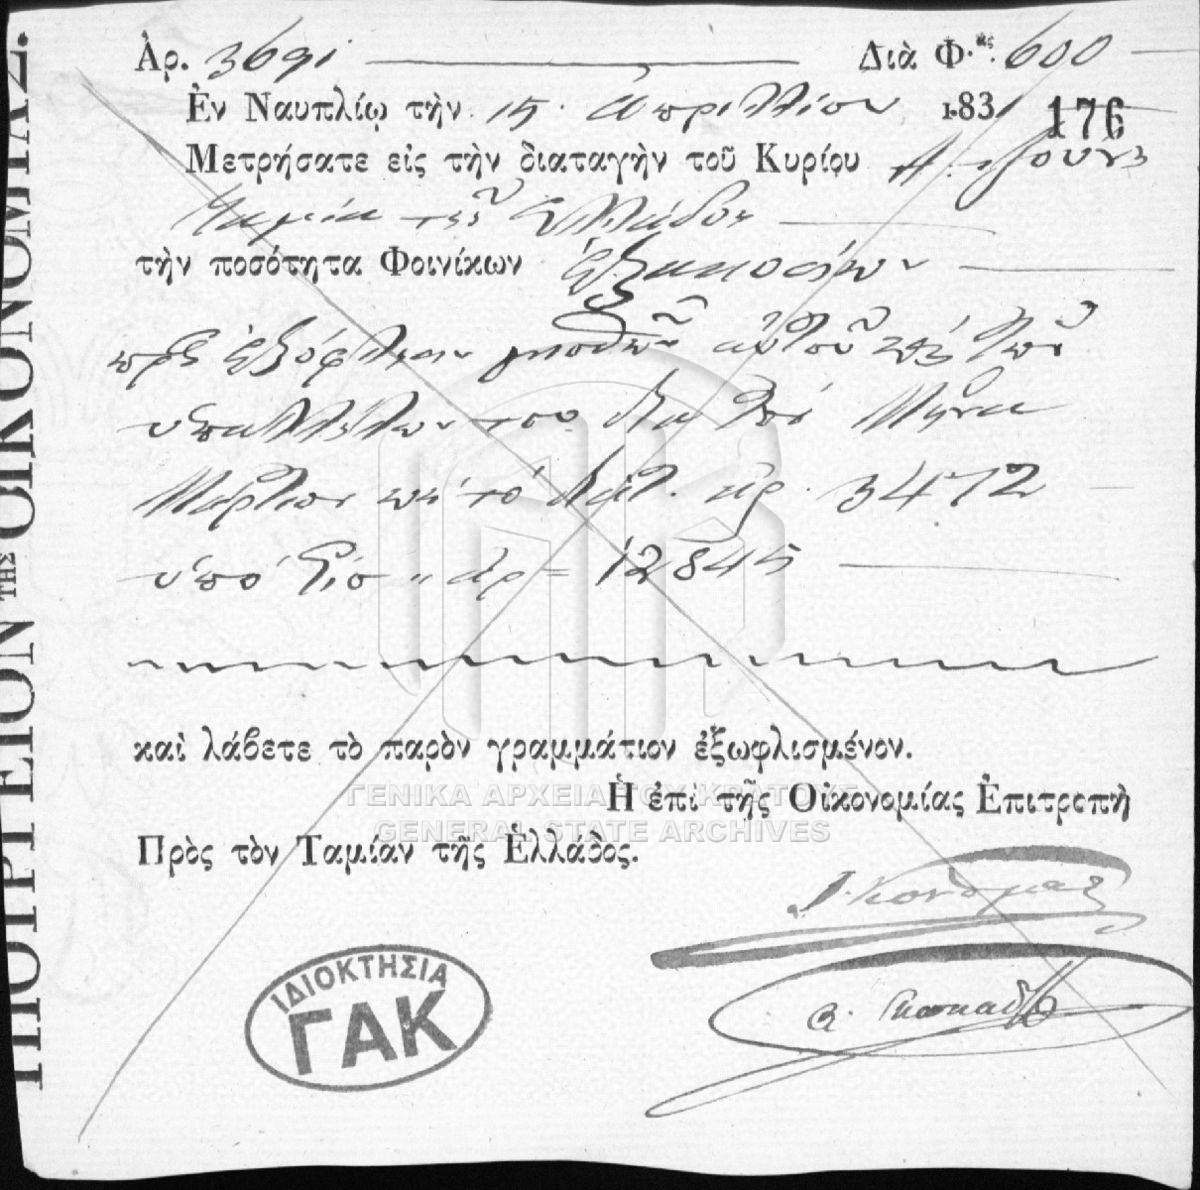 ΥΠΟΥΡΓΕΙΟΝ ΤΗΣ ΟΙΚΟΝΟΜΙΑΣ.
Ἀρ. 3691 Διὰ Φ.κας. 600
Ἐν Ναυπλίῳ τὴν 15 Ἀπριλλίου 1831 176
Μετρήσατε εἰς τὴν διαταγὴν τοῦ Κυρίου
Ταμία τῆς Ἑλλάδος
τὴν ποσότητα Φοινίκων ἑξακοσίων
πρὸς ἐξόφλησιν μισθῶν αὐτοῦ καὶ τῶν
ὑπαλλήλων του διὰ τὸν Μῆνα
Μάρτιον κατὰ τὸ διάτ. ἀρ. 3472
ὑπὸ ἀρ = 12845
καὶ λάβετε τὸ παρὸν γραμμάτιον ἐξωφλισμένον.
Ἡ ἐπὶ τῆς Οἰκονομίας Ἐπιτροπὴ
ΓΕΝΙΚΑ ΑΡΧΕΙΑ ΤΟΥ ΚΡΑΤΟΥΣ
GENERAL STATE ARCHIVES
Πρὸς τὸν Ταμίαν τῆς Ἑλλάδος.
ΙΔΙΟΚΤΗΣΙΑ
ΓΑΚ